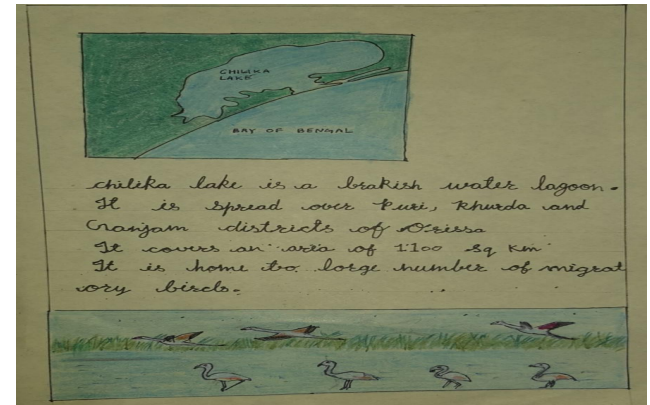 CHILIKA
LAKE
BAY OF BENGAL
chilika lake is a brakish water lagoon.
It is spread over Puri, Khurda and
Ganjam districts of Orissa
It covers an area of 1100 sq km
It is home to large number of migrat
ory birds.